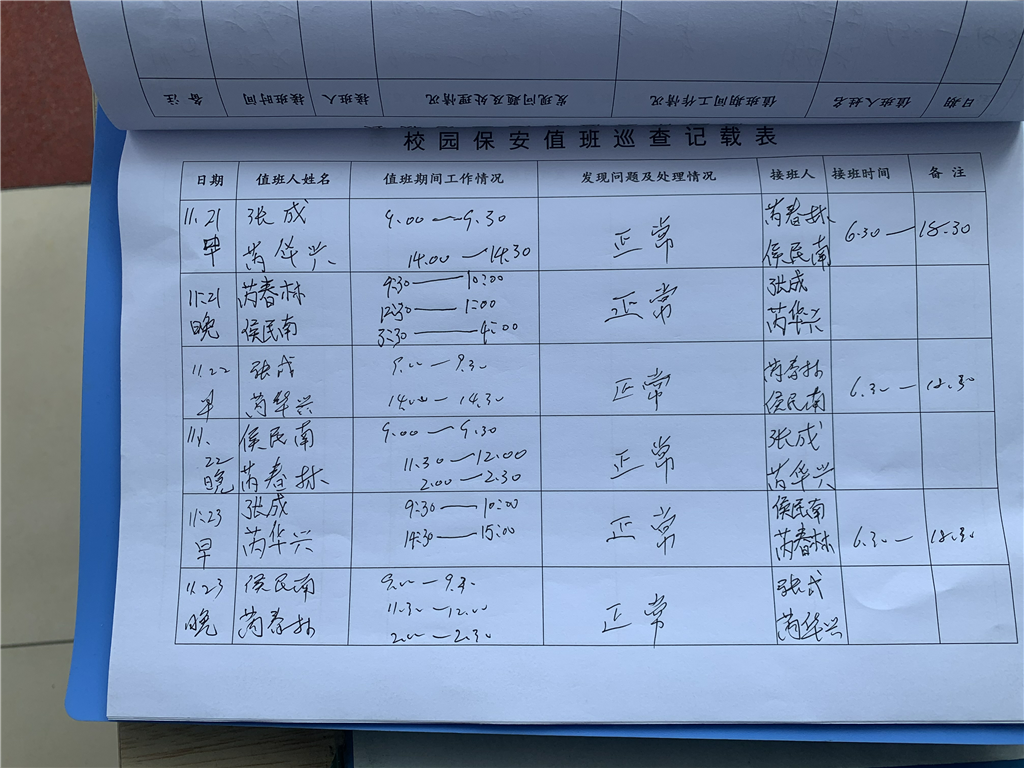 备注 接班时间 接班人 发现问题及处理情况 值班期间工作情况 值班人姓名 日期
校园保安值班巡查记载表
日期 值班人姓名 值班期间工作情况 发现问题及处理情况 接班人 接班时间 备注
11.21 张成 9.00—9.30 正常 芮春林 6.30—18.30
早 芮华兴 14.00—14.30 侯民南
11.21 芮春林 9:30—10:00 正常 张成
12:30—1:00
晚 侯民南 3:30—4:00 芮华兴
11.22 张成 9.00—9.30 正常 芮春林 6.30—18.30
早 芮华兴 14.00—14.30 侯民南
11. 侯民南 9.00—9.30 正常 张成
22 11.30—12.00
晚 芮春林 2.00—2.30 芮华兴
11.23 张成 9:30—10:00 正常 侯民南
早 芮华兴 14:30—15:00 芮春林 6.30—18.30
11.23 侯民南 9.00—9.30 正常 张成
11.30—12.00
晚 芮春林 2.00—2.30 芮华兴